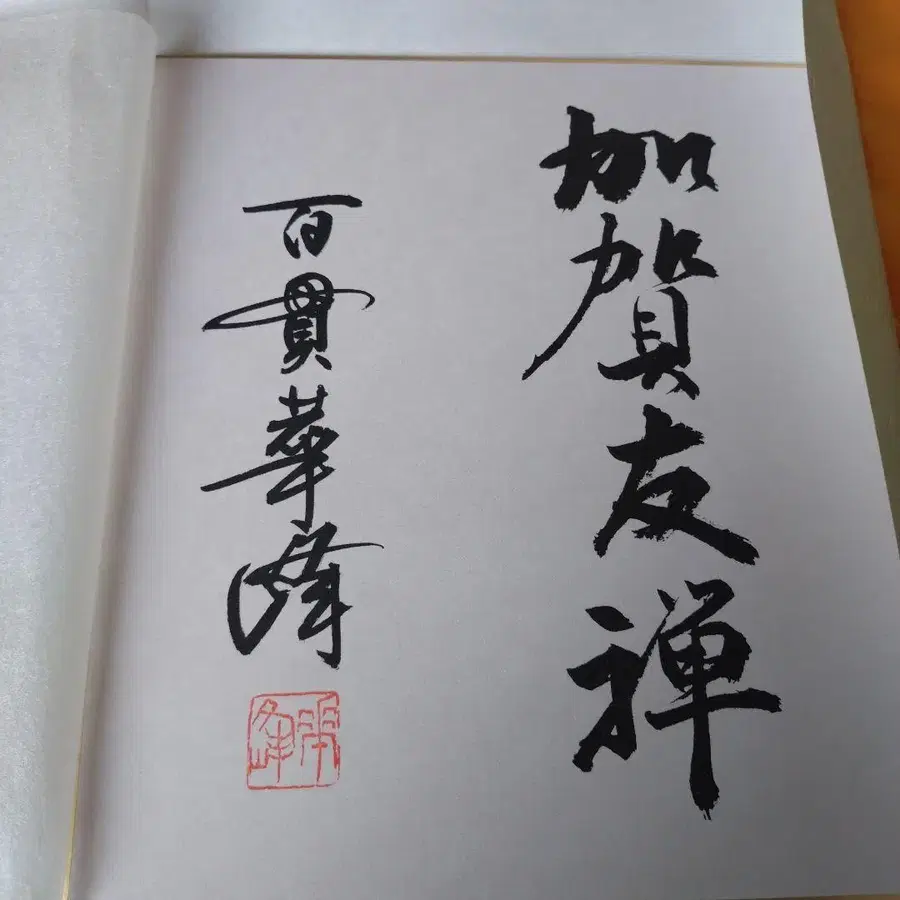 加賀友禅
百貫華峰